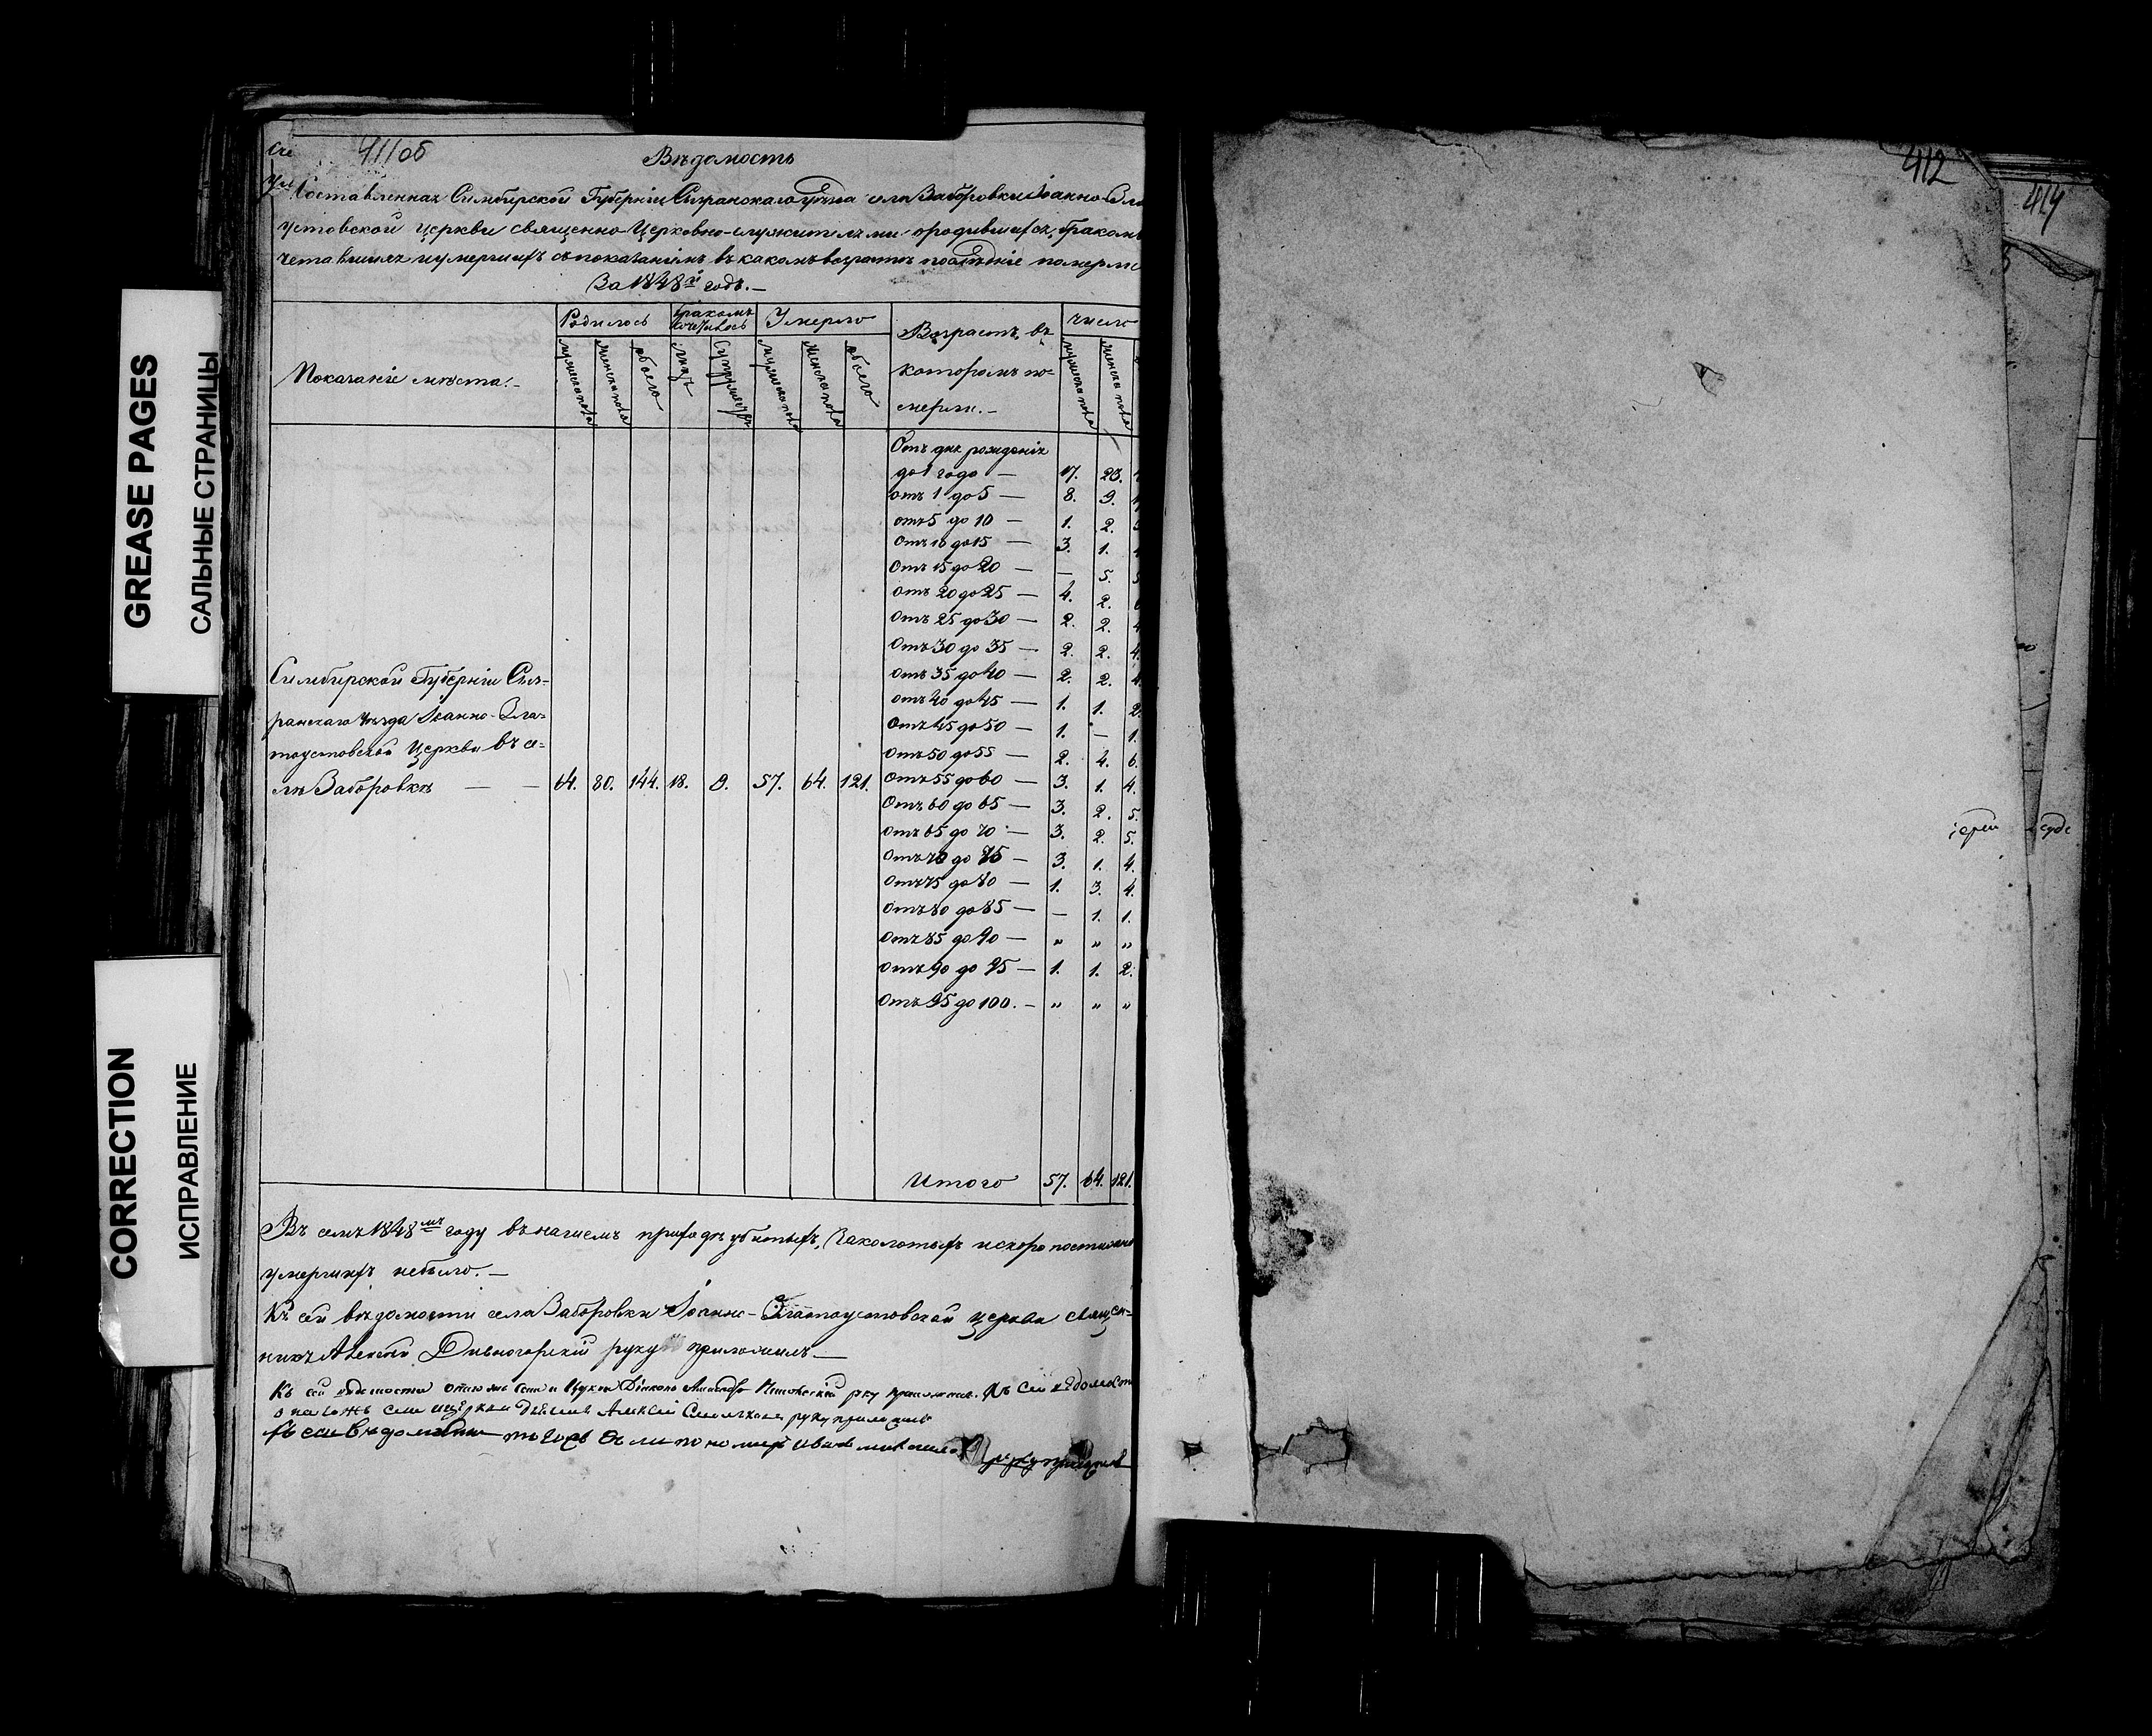 411об
Вѣдомость
Составленная Симбирской Губерніи Сызранскаго уѣзда села Заборовки Іоанно-Зла
устовской церкви священно-Церковно-служителями о родившихся, бракомъ
четавшихся и умершихъ съ показаніемъ въ какомъ возрастѣ послѣдніе померли
За 1848й годъ.—
Показаніе мѣста.-
Родилось
Бракомъ сочеталось
Умерло
Возрастъ, въ
которомъ по=
мерли.-
число
мужеска пола
женска пола
обоего
лицъ
Супружествъ
мужеска пола
женска пола
обоего
мужеска пола
женска пола
Отъ дня рожденія
до 1 года — 17. 23.
отъ 1 до 5 — 8. 9.
отъ 5 до 10 — 1. 2.
Отъ 10 до 15 — 3. 1.
Отъ 15 до 20 — — 5.
отъ 20 до 25 — 4. 2.
Отъ 25 до 30 — 2. 2.
Отъ 30 до 35 — 2. 2. 4.
отъ 35 до 40 — 2. 2. 4.
отъ 40 до 45 — 1. 1. 2.
Отъ 45 до 50 — 1. — 1.
Отъ 50 до 55 — 2. 4. 6.
Отъ 55 до 60 — 3. 1. 4.
Отъ 60 до 65 — 3. 2. 5.
отъ 65 до 70 — 3. 2. 5.
Отъ 70 до 75 — 3. 1. 4.
Отъ 75 до 80 — 1. 3. 4.
Отъ 80 до 85 — — 1. 1.
Отъ 85 до 90 — „ „ „
Отъ 90 до 95 — 1. 1. 2.
Отъ 95 до 100. — „ „ „
Симбирской Губерніи Сыз-
ранскаго уѣзда Іоанно-Зла-
тоустовской Церкви въ се-
лѣ Заборовкѣ — — 64. 80. 144. 18. 9. 57. 64. 121.
Итого 57. 64. 121.
Въ семъ 1848мъ году въ нашемъ приходѣ убитыхъ, заколотыхъ и скоропостижно
умершихъ небыло.—
Къ сей вѣдомости села Заборовки Іоанно-Златоустовской церкви священ-
никъ Алексѣй Дивногорскій руку приложилъ—
Къ сей вѣдомости тоюже села и Церкви Діаконъ руку приложилъ. Къ сей вѣдомости
тогожъ села и церкви Алексѣй руку приложилъ
Къ сей вѣдомости тогожъ села пономарь Иванъ
руку приложилъ
412
414
GREASE PAGES
САЛЬНЫЕ СТРАНИЦЫ
CORRECTION
ИСПРАВЛЕНИЕ